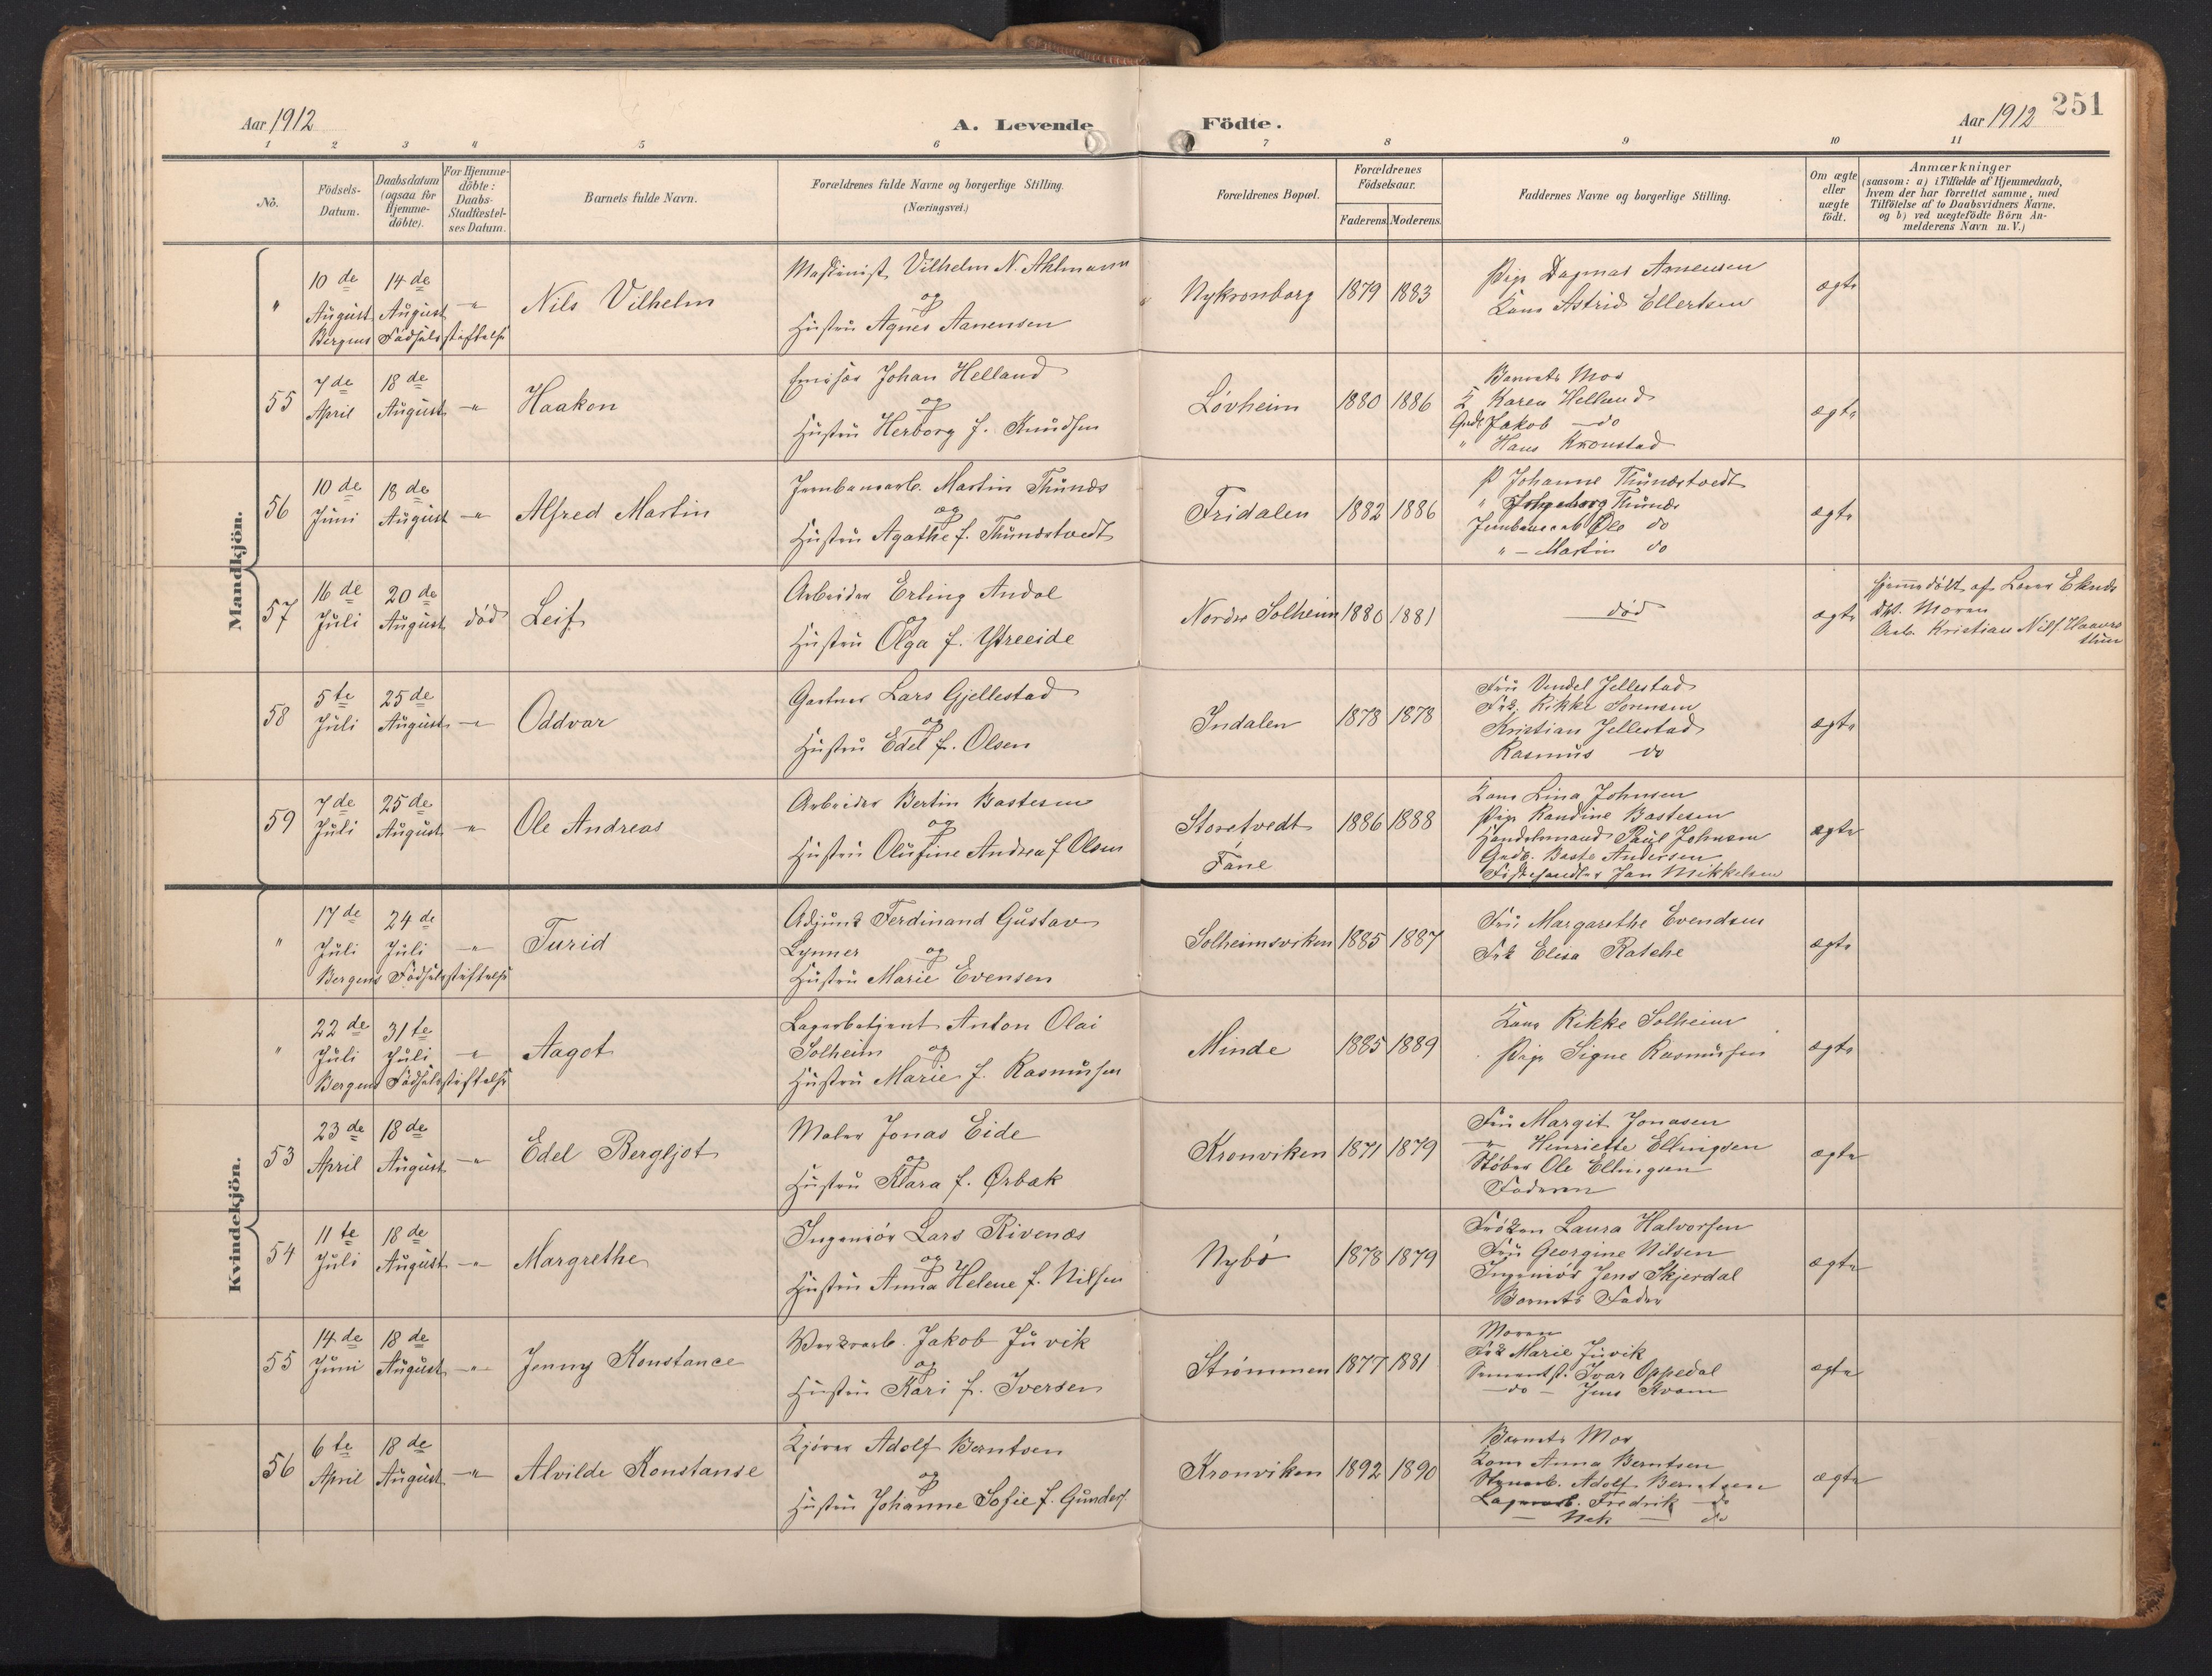 Aar 1912
A. Levende
Födte.
Aar 1912
251
1 2 3 4 5 6 7 8 9 10 11
No.
Födsels-Datum.
Daabsdatum (ogsaa for Hjemme-döbte).
For Hjemme-döbte: Daabs-Stadfæstel-ses Datum.
Barnets fulde Navn.
Forældrenes fulde Navne og borgerlige Stilling.
(Næringsvei.)
Forældrenes Bopæl.
Forældrenes Födselsaar.
Faderens. Moderens.
Faddernes Navne og borgerlige Stilling.
Om ægte eller uægte födt.
Anmærkninger
(saasom: a) i Tilfælde af Hjemmedaab,
hvem der har forrettet samme, med
Tilföielse af to Daabsvidners Navne,
og b) ved uægtefödte Börn An-
melderens Navn m. V.)
Mandkjön.
" 10de August 14de August -"- Nils Vilhelm
Bergens Fødselsstiftelse
Maskinist Vilhelm N. Ahlmann
og
Hustru Agnes Aanensen
Nykronborg 1879 1883
Pige Dagmar Aanensen
Kone Astrid Ellertsen
ægte
55 7de April 18de August -"- Haakon
Emisær Johan Helland
og
Hustru Herborg f. Knudsen
Løvheim 1880 1886
Barnets Mor
K Karen Helland
Gmd. Jakob do
" Hans Kronstad
ægte
56 10de Juni 18de August -"- Alfred Martin
Jernbanearb. Martin Thunds
og
Hustru Agathe f. Thundstvedt
Fridalen 1882 1886
P Johanne Thundstvedt
" Ingeborg Thunds
Jernbanearb Ole do
" - Martin do
ægte
57 16de Juli 20de August død Leif
Arbeider Erling Andal
og
Hustru Olga f. Ystreeide
Nordre Solheim 1880 1881
død
ægte
hjemmedøbt af Lærer Eknes
dpt. Moren
Arb. Kristian Nils
58 5te Juli 25de August -"- Oddvar
Gartner Lars Gjellestad
og
Hustru Edel f. Olsen
Indalen 1878 1878
Fru Vendel Jellestad
Frk. Rikke Sørensen
Kristian Jellestad
Rasmus do
ægte
59 7de Juli 25de August -"- Ole Andreas
Arbeider Bertin Bastesen
og
Hustru Olufine Andrea f Olsen
Storetvedt
Fane
1886 1888
Kone Lina Johnsen
Pige Randine Bastesen
Handelsmand Paul Johnsen
Gmd. Baste Andersen
Fiskehandler Jan Mikkelsen
ægte
Kvindekjön.
" 17de Juli 24de Juli -"- Turid
Bergens Fødselsstiftelse
Adjunkt Ferdinand Gustav
Lynner og
Hustru Marie Evensen
Solheimsviken 1885 1887
Fru Margarethe Evendsen
Frk Elisa Ratche
ægte
" 22de Juli 31te Juli -"- Aagot
Bergens Fødselsstiftelse
Lagerbetjent Anton Olai
Solheim og
Hustru Marie f. Rasmussen
Minde 1885 1889
Kone Rikke Solheim
Pige Signe Rasmussen
ægte
53 23de April 18de August -"- Edel Bergljot
Maler Jonas Eide
og
Hustru Klara f. Ørbæk
Kronviken 1871 1879
Fru Margit Jonasen
-"- Henriette Ellingsen
Støber Ole Ellingsen
Faderen
ægte
54 11te Juli 18de August -"- Margrethe
Ingeniør Lars Rivenæs
og
Hustru Anna Helene f. Nilsen
Nybø 1878 1879
Frøken Laura Halvorsen
Fru Georgine Nilsen
Ingeniør Jens Skjerdal
Barnets Fader
ægte
55 14de Juni 18de August -"- Jenny Konstance
Verksarb. Jakob Juvik
og
Hustru Kari f. Iversen
Strømmen 1877 1881
Moren
Frk Marie Juvik
Sementst. Ivar Oppedal
- do - Jens Kvam
ægte
56 6te April 18de August -"- Alvilde Konstanse
Kjører Adolf Berntsen
og
Hustru Johanne Sofie f. Gunders.
Kronviken 1892 1890
Barnets Mor
Kone Anna Berntsen
Adolf Berntsen
Lagerarb. Fredrik - do
- Nek - do
ægte